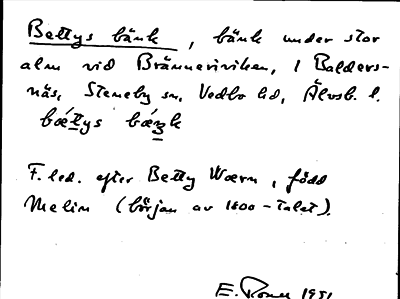 Bettys bänk, bänk under stor
alm vid Bränneriviken, i Balders-
näs, Steneby sn, Vedbo hd, Älvsb. l.
bǽt̲ys bǽŋk
F.led. efter Betty Wærn, född
Melin (början av 1800-talet).
E. 1951